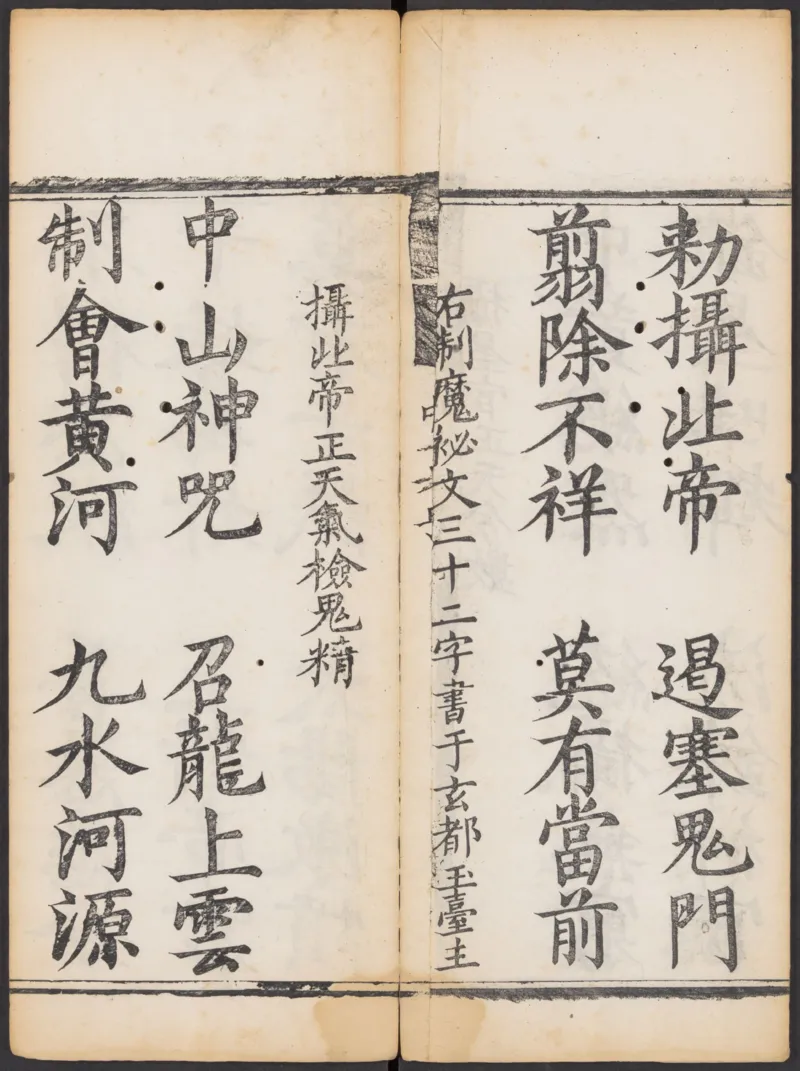 勑攝北帝　遏塞鬼門
翦除不祥　莫有當前
右制魔祕文三十二字書于玄都玉臺主
攝北帝正天氣檢鬼精
中山神咒　召龍上雲
制會黃河　九水河源